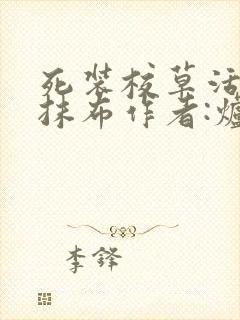 死装校草活
抹布作者:炉
李铎